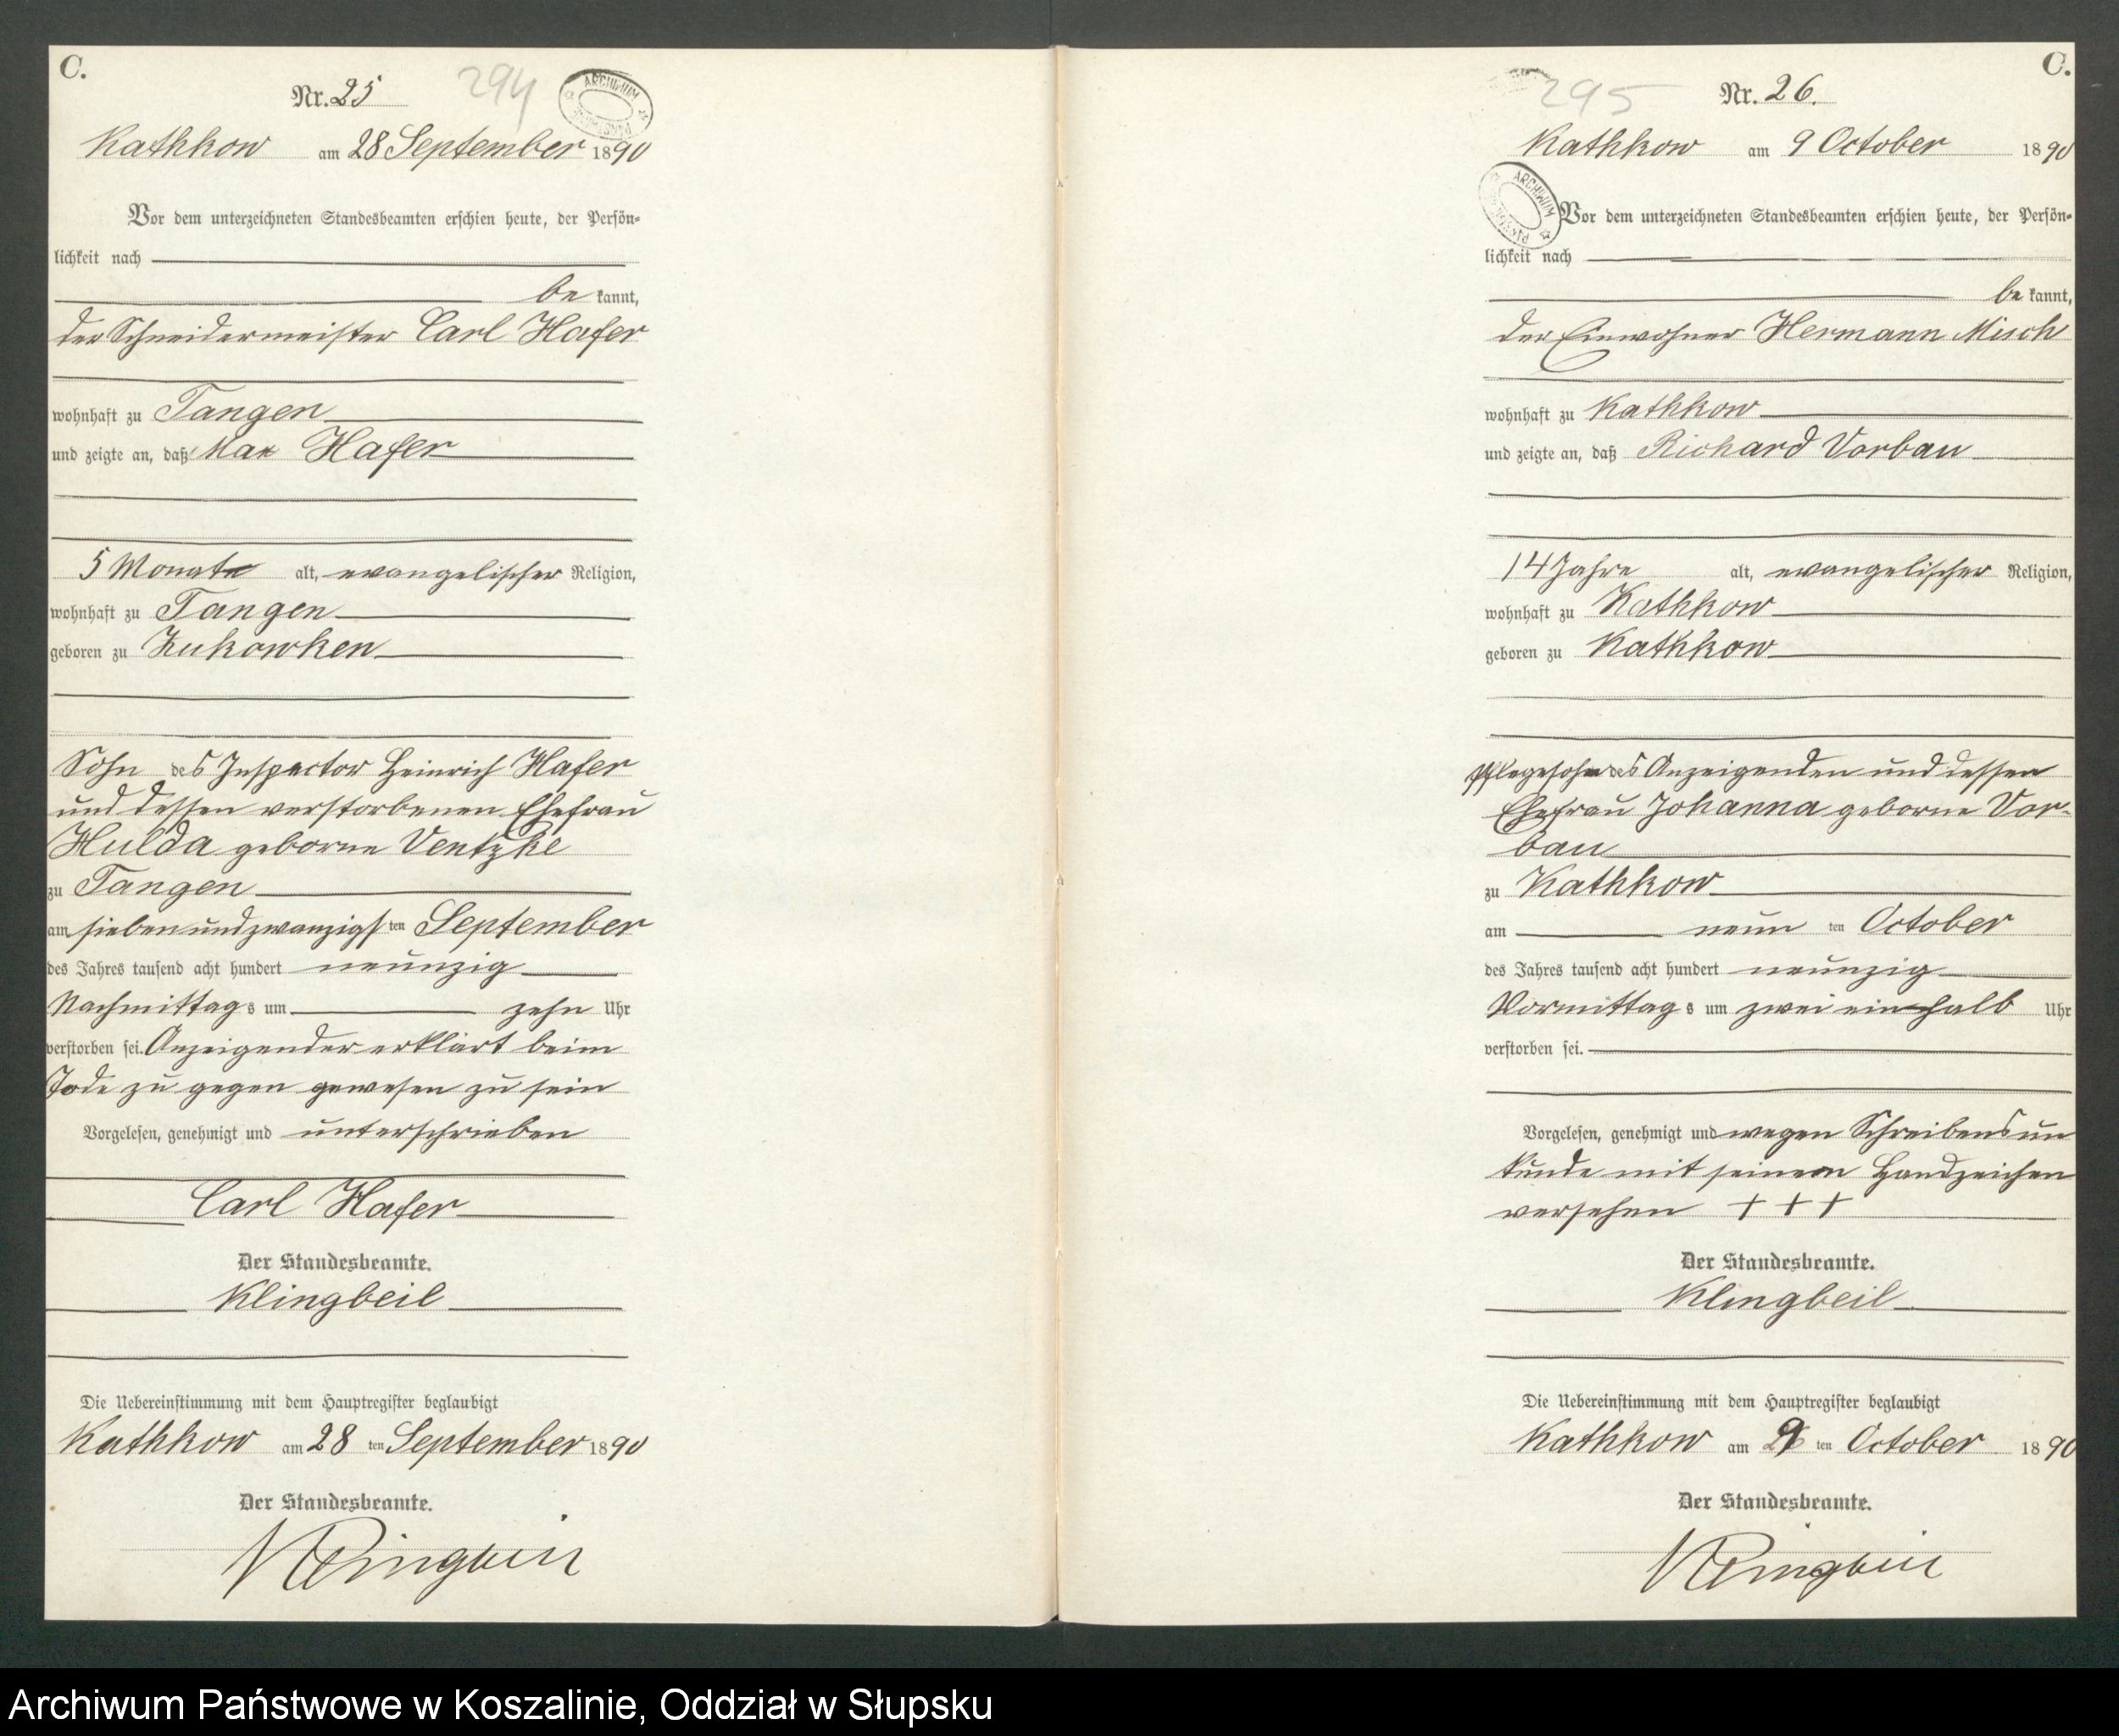 C.
Nr. 25
294
ARCHIWUM
Kathkow am 28 September 1890
Vor dem unterzeichneten Standesbeamten erschien heute, der Persön-
lichkeit nach
be kannt,
der Schneidermeister Carl Hafer
wohnhaft zu Tangen
und zeigte an, daß Max Hafer
5 Monate alt, evangelischer Religion,
wohnhaft zu Tangen
geboren zu Zukowken
Sohn des Inspector Heinrich Hafer
und dessen verstorbenen Ehefrau
Hulda geborne Ventzke
zu Tangen
am siebenundzwanzigsten September
des Jahres tausend acht hundert neunzig
Nachmittags um zehn Uhr
verstorben sei. Anzeigender erklärt beim
Tode zu gegen gewesen zu sein
Vorgelesen, genehmigt und unterschrieben
Carl Hafer
Der Standesbeamte.
Klingbeil
Die Uebereinstimmung mit dem Hauptregister beglaubigt
Kathkow am 28 ten September 1890
Der Standesbeamte.
Klingbeil
C.
295
Nr. 26.
Kathkow am 9 October 1890
ARCHIWUM
Vor dem unterzeichneten Standesbeamten erschien heute, der Persön-
lichkeit nach
be kannt,
der Einwohner Hermann Misch
wohnhaft zu Kathkow
und zeigte an, daß Richard Vorbau
14 Jahre alt, evangelischer Religion,
wohnhaft zu Kathkow
geboren zu Kathkow
Pflegesohn des Anzeigenden und dessen
Ehefrau Johanna geborne Vor-
bau
zu Kathkow
am neun ten October
des Jahres tausend acht hundert neunzig
Vormittags um zwei ein halb Uhr
verstorben sei.
Vorgelesen, genehmigt und wegen Schreibensun
kunde mit seinem Handzeichen
versehen + + +
Der Standesbeamte.
Klingbeil
Die Uebereinstimmung mit dem Hauptregister beglaubigt
Kathkow am 9 ten October 1890
Der Standesbeamte.
Klingbeil
Archiwum Państwowe w Koszalinie, Oddział w Słupsku